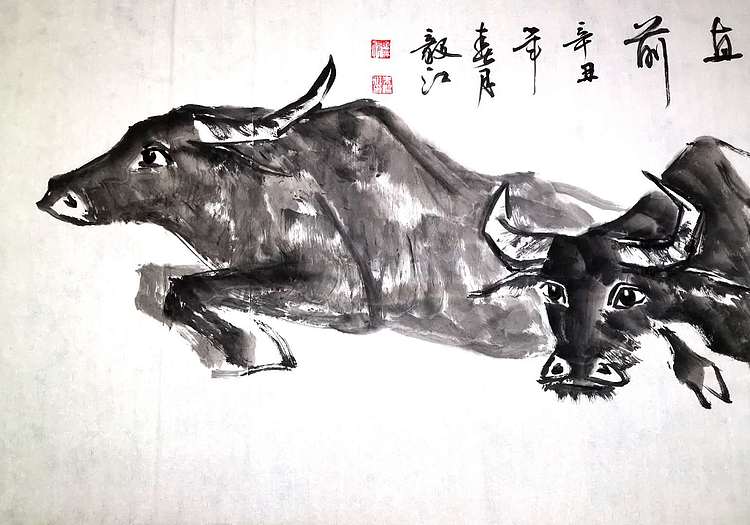 直
前
辛丑
年
春月
毅江